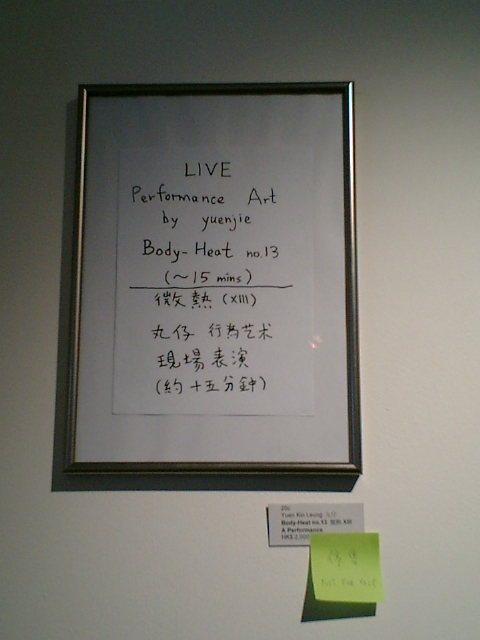 LIVE
Performance Art
by yuenjie
Body-Heat no.13
(~15 mins)
微熱 (XIII)
丸仔 行為艺术
現場表演
(約十五分鐘)
Yuen Kin Leung
Body-Heat no.13
A Performance
HK$ 2,
NOT FOR SALE